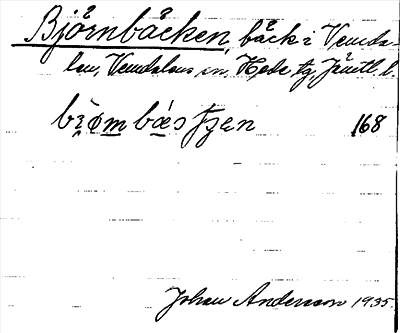 Björnbäcken, bäck i Vemda-
len, Vemdalens sn, Hede tg, Jämtl. l.
168
Johan Andersson 1935.